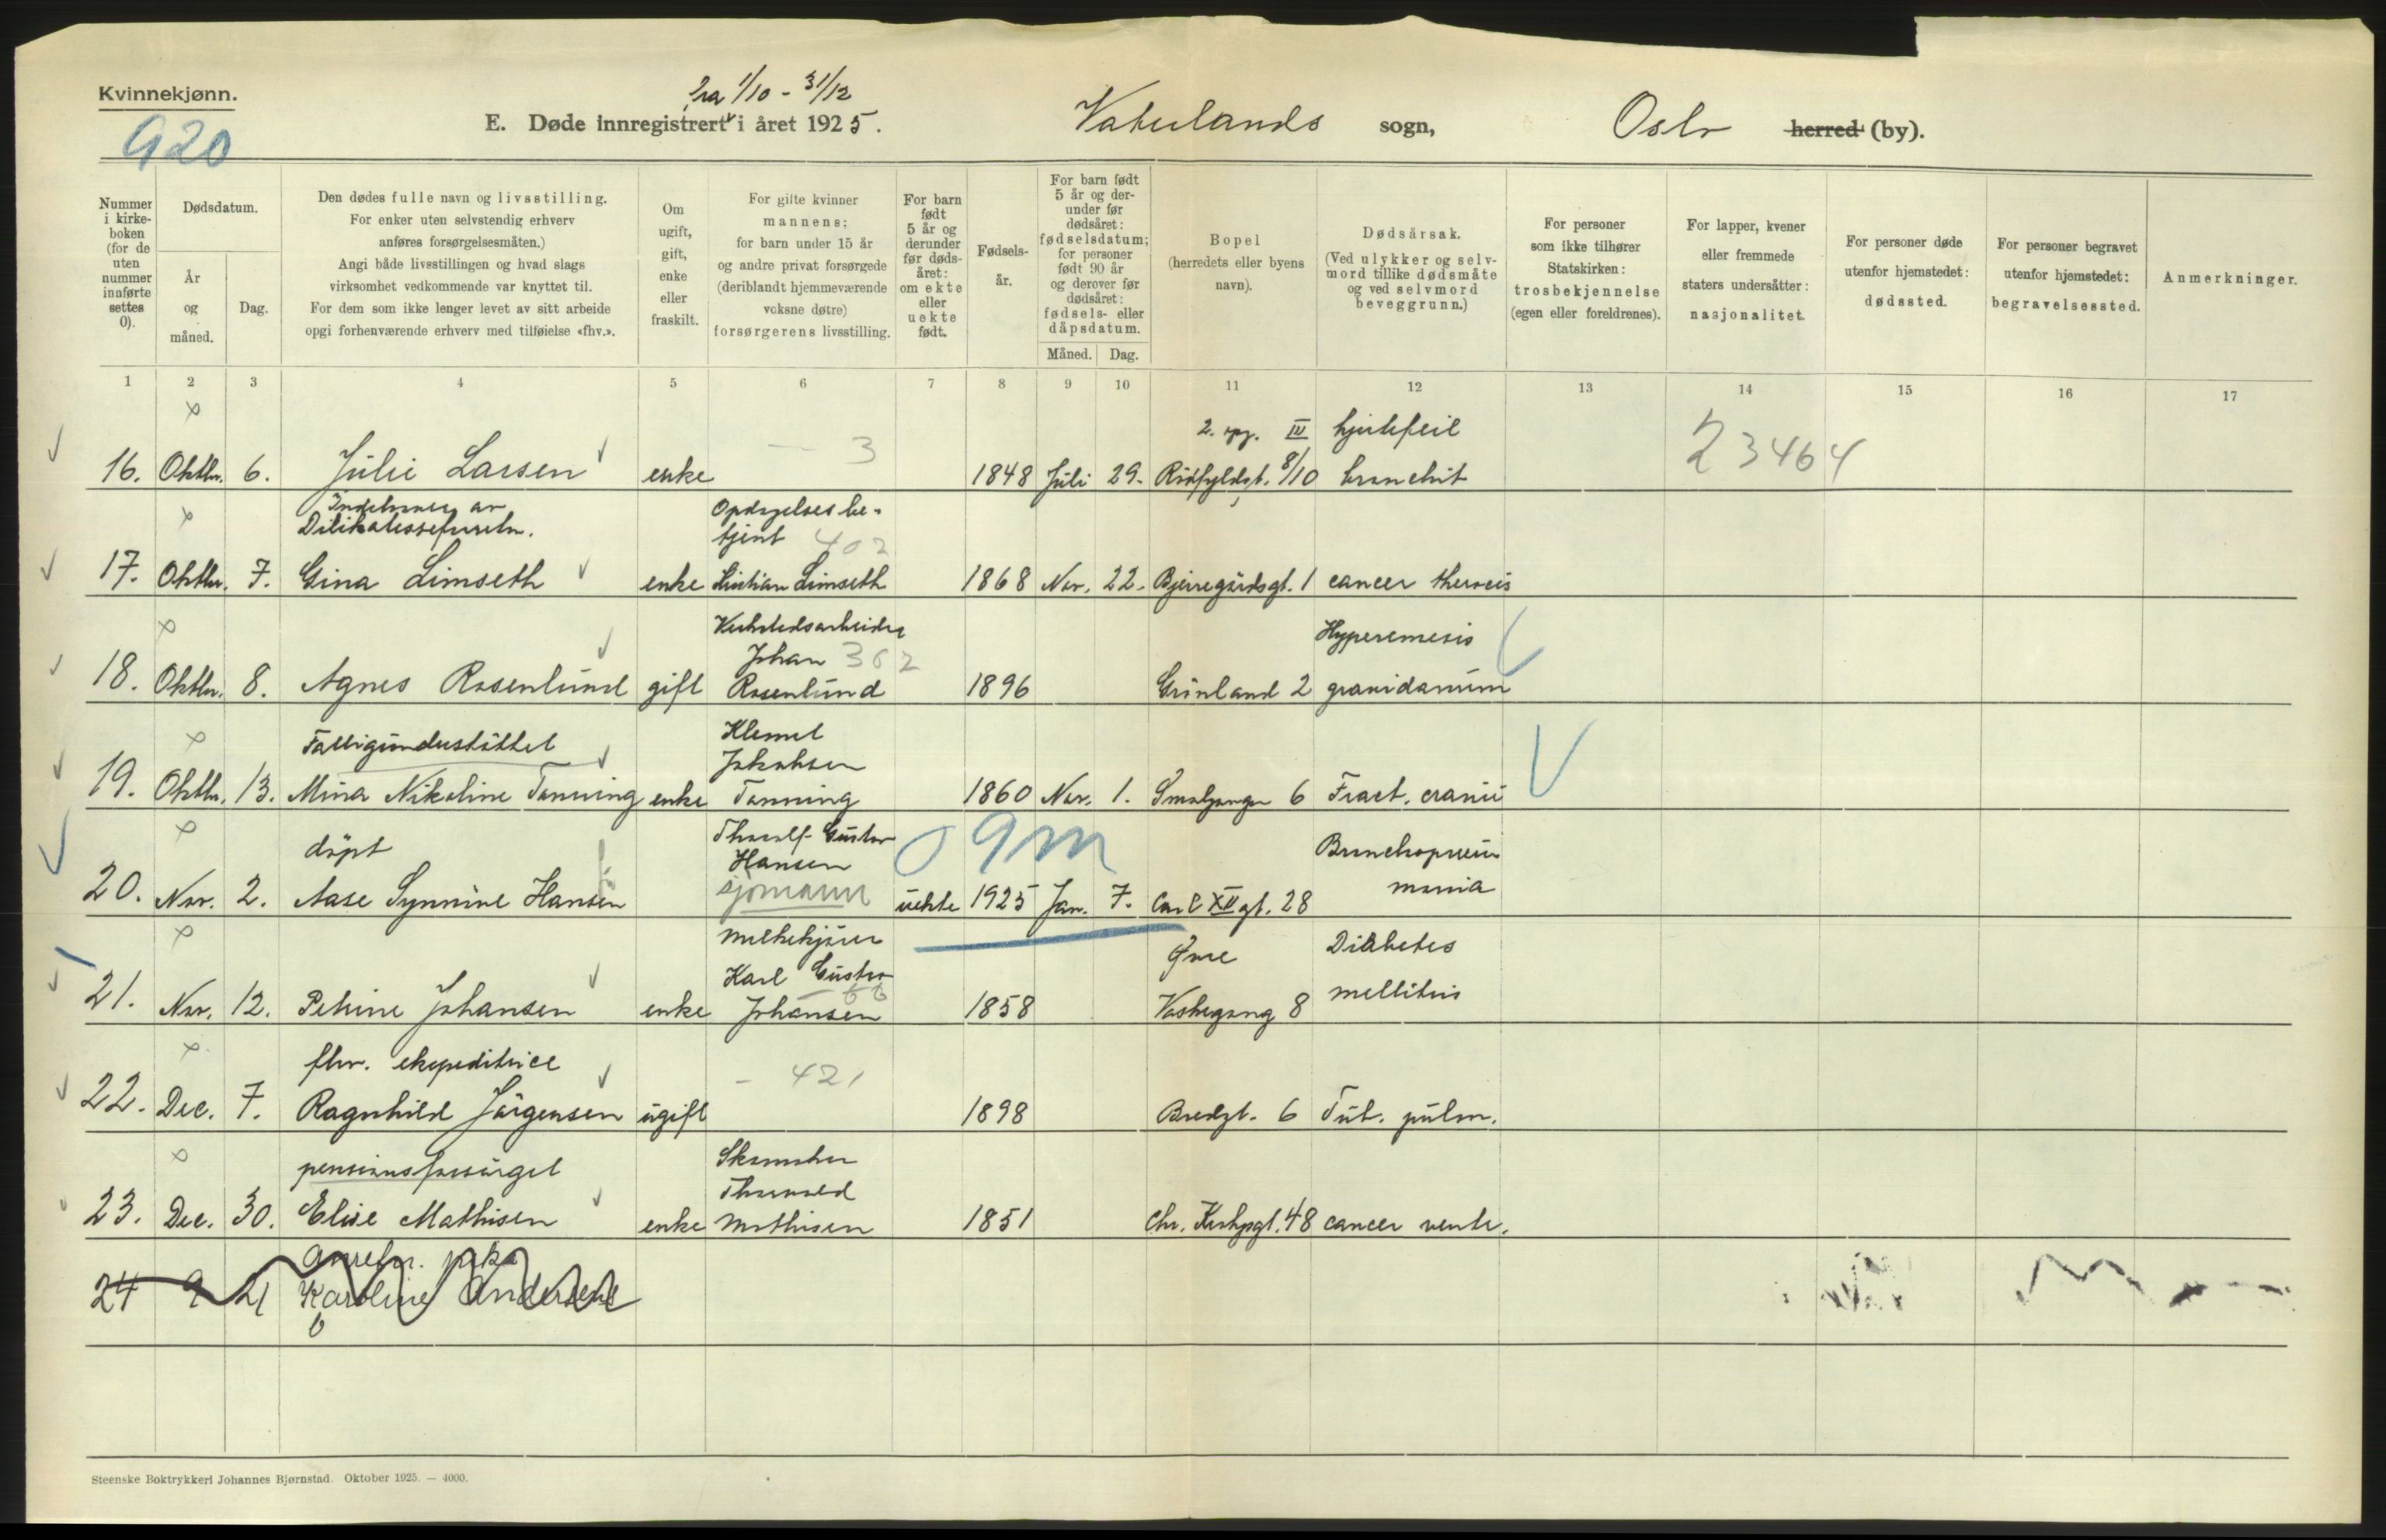 Kvinnekjønn.
920
fra 1/10 - 31/12
E. Døde innregistrert i året 1925.
Vaterlands sogn,
Oslo herred (by).
Nummer i kirkeboken (for de uten nummer innførte settes 0).
Dødsdatum.
År og måned.
Dag.
Den dødes fulle navn og livsstilling.
For enker uten selvstendig erhverv
anføres forsørgelsesmåten.)
Angi både livsstillingen og hvad slags
virksomhet vedkommende var knyttet til.
For dem som ikke lenger levet av sitt arbeide
opgi forhenværende erhverv med tilføielse «fhv.».
Om ugift, gift, enke eller fraskilt.
For gifte kvinner
mannens;
for barn under 15 år
og andre privat forsørgede
(deriblandt hjemmeværende
voksne døtre)
forsørgerens livsstilling.
For barn født 5 år og derunder før dødsåret: om ekte eller uekte født.
Fødselsår.
For barn født 5 år og derunder før dødsåret: fødselsdatum; for personer født 90 år og derover før dødsåret: fødsels- eller dåpsdatum.
Måned.
Dag.
Bopel
(herredets eller byens
navn).
Dødsårsak.
(Ved ulykker og selv-
mord tillike dødsmåte
og ved selvmord
beveggrunn.)
For personer
som ikke tilhører
Statskirken:
trosbekjennelse
(egen eller foreldrenes).
For lapper, kvener
eller fremmede
staters undersåtter:
nasjonalitet.
For personer døde
utenfor hjemstedet:
dødssted.
For personer begravet
utenfor hjemstedet:
begravelsessted.
Anmerkninger.
1 2 3 4 5 6 7 8 9 10 11 12 13 14 15 16 17
2. opg. III hjertefeil
16. Oktbr. 6. Julie Larsen enke - 3 1848 Juli 29. Rødfyldgt. 8/10 bronchit
23464
Indehaver av
Delikatesseforretn.
Opdagelsesbe-
tjent 402
17. Oktbr. 7. Gina Limseth enke Kristian Limseth 1868 Nov. 22. Bjerregårdsgt. 1 cancer
Verkstedsarbeider
Johan 302
Hyperemesis
18. Oktbr. 8. Agnes Rosenlund gift Rosenlund 1896 Grønland 2 gravidarum
Fattigunderstøttet
Klemet
Jakobsen
19. Oktbr. 13. Mina Nikoline Tanning enke Tanning 1860 Nov. 1. Smalgangen 6 Fract. cranii
døpt
Thoralf Gustav
Hansen
09m
Bronchopneu
monia
20. Nov. 2. Aase Synnøve Hansen sjømann uekte 1925 Jan. 7. Carl XII gt. 28
melkekjører
Karl Gustav
Øvre
Diabetes
mellitus
21. Nov. 12. Petrine Johansen enke Johansen 1858 Vaskegang 8
fhv. ekspeditrice
- 421
22. Dec. 7. Ragnhild Jørgensen ugift 1898 Bredgt. 6 Tub. pulm.
pensionsforsørget
Skomaker
Thorvald
23. Dec. 30. Elise Mathisen enke Mathisen 1851 Chr. Krohgsgt. 48 cancer ventr.
24 9 21 Karoline Andersen
Steenske Boktrykkeri Johannes Bjørnstad. Oktober 1925. — 4000.